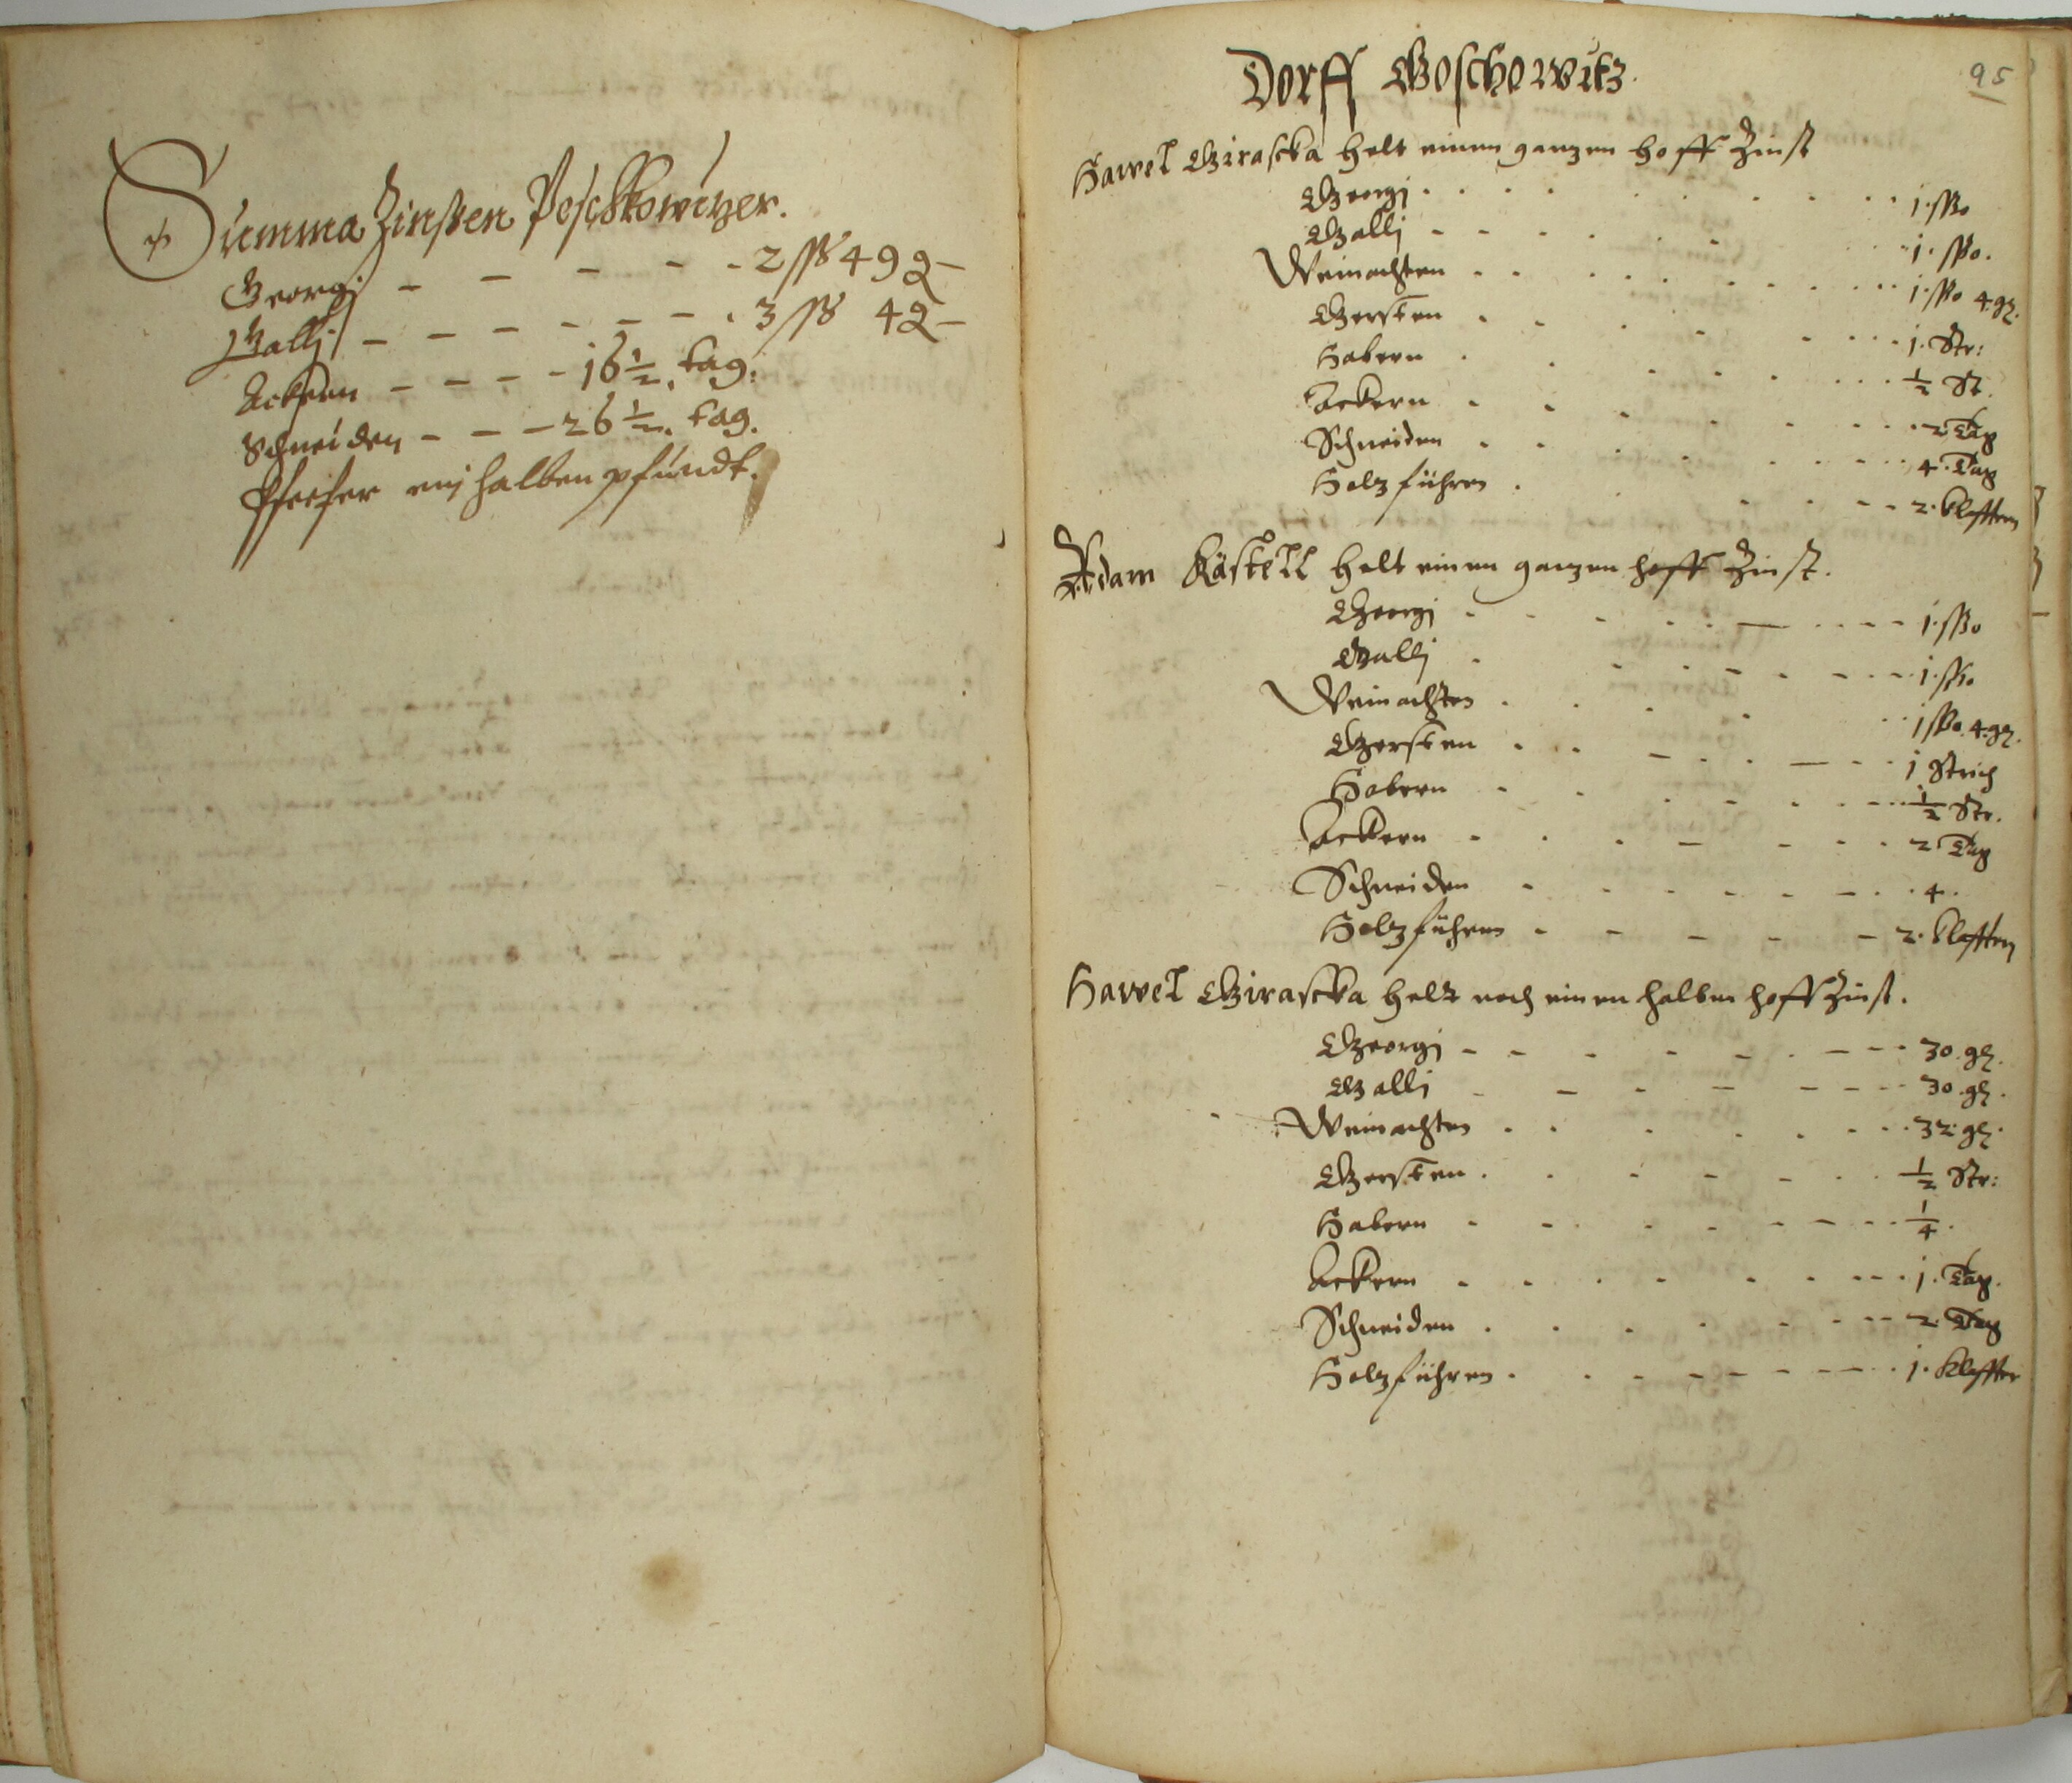 Summa Zinßen Peschkowizer.
Georgi - - - - - 2 ßß 49 g -
Galli - - - - - - 3 ßß 4 g -
Ackern - - - - 16 1/2. tag.
Schneiden - - - 26 1/2. tag.
Pfeffer ein halben pfundt.
95
Dorff Goschowitz.
Hawel Giraschka helt einen ganzen hoff Zinst
Georgi . . . . 1. ßo
Galli - - - - 1. ßo.
Weinachten . . . . 1. ßo 4. gr.
Gersten . . . . 1. Str:
Habern . . . . 1/2 St.
Ackern . . . . 2 Tag
Schneiden . . . . 4. Tag
Holz führen . . . . 2. klafftern
Adam Kästell helt einen ganzen hoff Zinst.
Georgi . . . . 1. ßo
Galli . . . . 1. ßo
Weinachten . . . . 1 ßo. 4. gr.
Gersten . . . . 1 Strich
Habern . . . . 1/2 Str.
Ackern . . . . 2 Tag
Schneiden . . . . 4.
Holz führen . . . . 2. klafftern
Hawel Giraschka helt noch einen halben hoff Zinst.
Georgi - - - - 30. gr.
Galli - - - - 30. gr.
Weinachten . . . . 32. gr.
Gersten . . . . 1/2 Str:
Habern . . . . 1/4.
Ackern . . . . 1. Tag.
Schneiden . . . . 2. Tag
Holz führen . . . . 1. klaffter